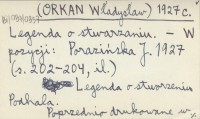 (ORKAN Władysław) 1927 c.
Legenda o stwarzaniu. – W
pozycji: Porazińska J. 1927
(s. 202–204, il.)
Legenda o stworzeniu
Podhala.
Poprzednio drukowane w